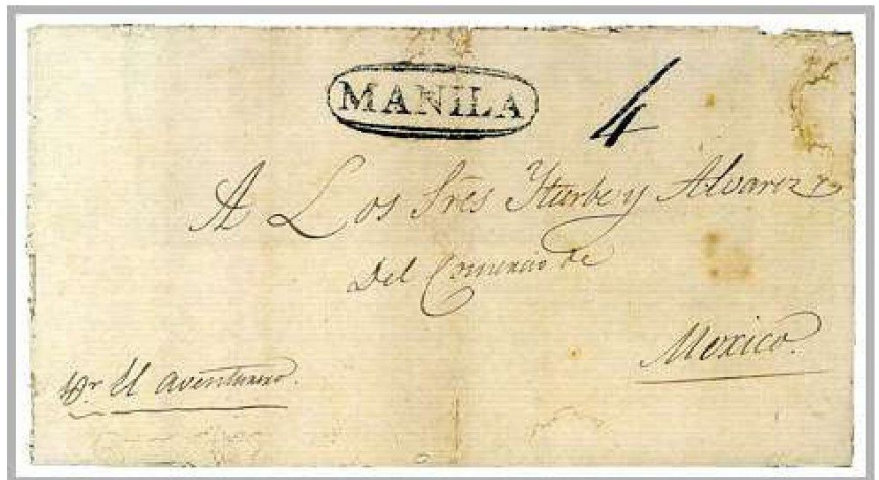 MANILA
4
A Los Sres Yturbe y Alvarez
Del Comercio de
Mexico.
Pr. El aventurero.